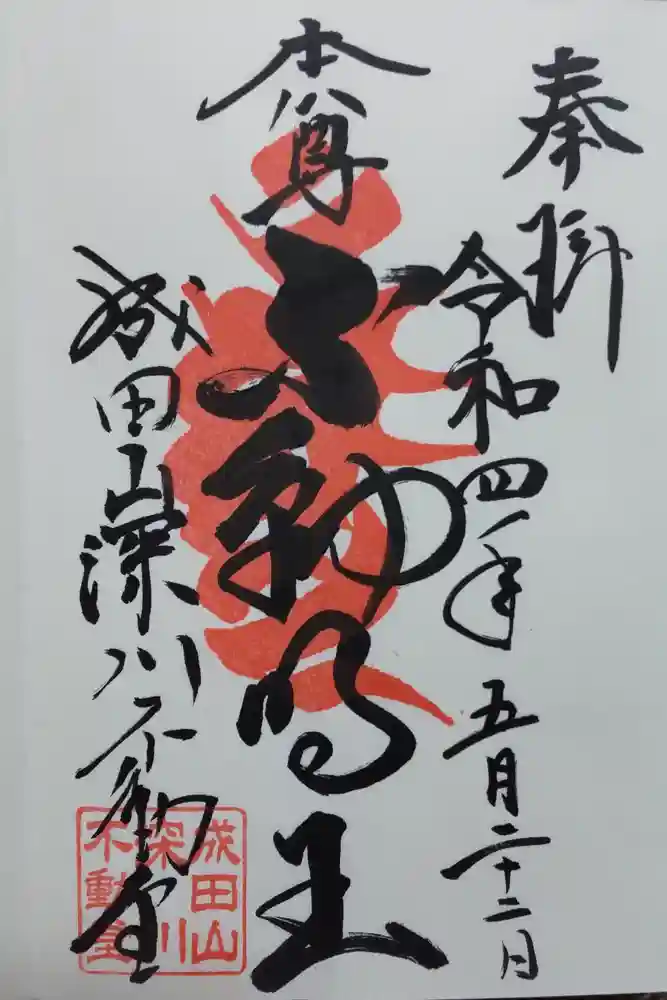 奉拝
令和四年五月二十二日
本尊
不動明王
成田山深川不動堂
成田山
深川
不動堂